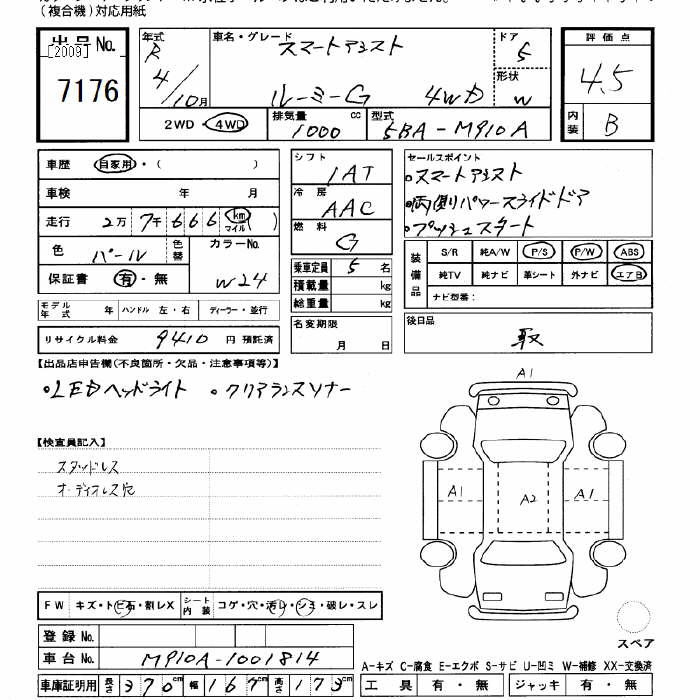 (複合機)対応用紙
出品No.
[2009]
7176
年式
R 4/10月
車名・グレード
スマートアシスト
ルーミーG 4WD
ドア
5
形状
W
評価点
4.5
内装
B
2WD・4WD
排気量 1000 cc
型式 5BA-M910A
車歴 自家用・( )
車検 年 月
走行 2万7千666 km マイル( )
色 パール 色替
カラーNo. W24
保証書 有・無
モデル年式 年 ハンドル 左・右 ディーラー・並行
リサイクル料金 9410 円 預託済
シフト
1AT
冷房
AAC
燃料
G
乗車定員 5 名
積載量 kg
総重量 kg
名変期限
月 日
セールスポイント
・スマートアシスト
・両側パワースライドドア
・プッシュスタート
装備品
S/R 純A/W P/S P/W ABS
純TV 純ナビ 革シート 外ナビ エアB
ナビ型番:
後日品
取
【出品店申告欄(不良箇所・欠品・注意事項等)】
・LEDヘッドライト ・クリアランスソナー
【検査員記入】
スタッドレス
オーディオレス穴
A1
A1
A2
A1
スペア
FW キズ・トビ石・割レX
シート内装 コゲ・穴・汚レ・シミ・破レ・スレ
登録No.
車台No. M910A-1001814
車庫証明用 長さ 370cm 幅 167cm 高さ 173cm
A-キズ C-腐食 E-エクボ S-サビ U-凹ミ W-補修 XX-交換済
工具 有・無 ジャッキ 有・無